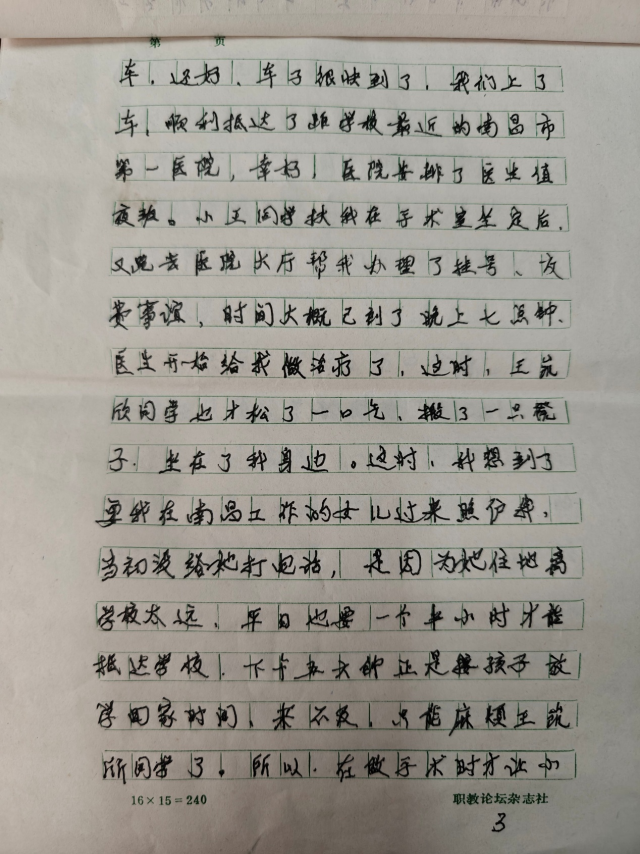 第 页
车，还好，车子很快到了，我们上了
车，顺利抵达了距学校最近的南昌市
第一医院，幸好，医院安排了医生值
夜班。小王同学扶我在手术室坐定后，
又跑去医院大厅帮我办理了挂号、交
费事谊，时间大概已到了晚上七点钟、
医生开始给我做治疗了，这时，王苑
欣同学也才松了一口气，搬了一只凳
子，坐在了我身边。这时，我想到了
要我在南昌工作的女儿过来照顾我，
当初没给她打电话，是因为她住地离
学校太远，平日也要一个半小时才能
抵达学校，下午五六钟正是接孩子放
学回家时间，来不及，只能麻烦王苑
欣同学了。所以，在做手术时才让小
16×15=240
职教论坛杂志社
3